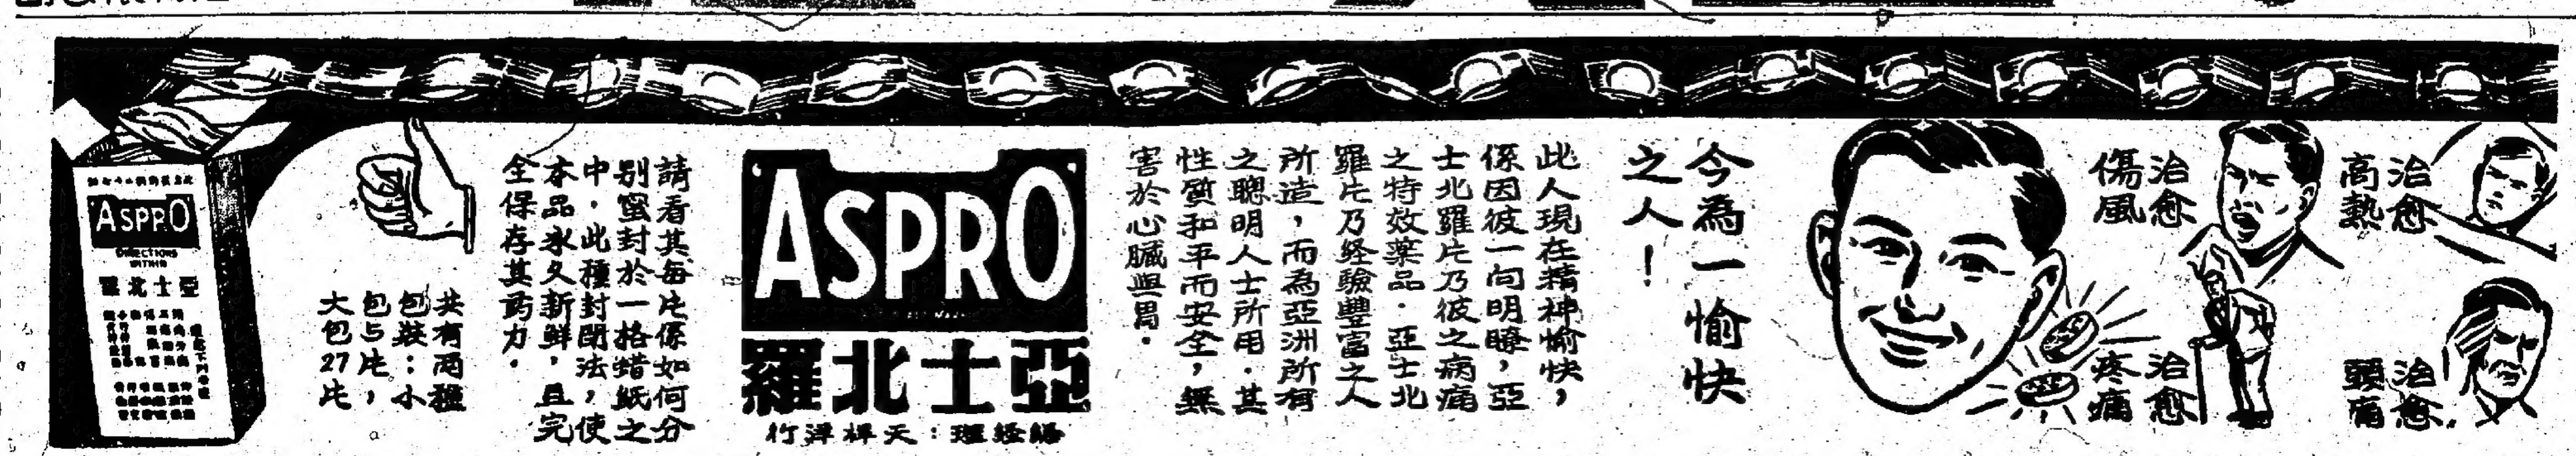 治愈
高熱
治愈
頭痛
治愈
傷風
治愈
疼痛
今為一愉快
之人！
此人現在精神愉快，
係因彼一向明瞭，亞
士北羅片乃彼之病痛
之特效藥品．亞士北
羅片乃经驗豐富之人
所造，而為亞洲所有
之聰明人士所用．其
性質和平而安全，無
害於心臟與胃．
ASPRO
亞士北羅
總經理：天祥洋行
請看其每片係如何分
别蜜封於一格蜡紙之
中．此種封閉法，使
本品永久新鮮，且完
全保存其药力．
共有两種
包裝：小
包5片，
大包27片
ASPRO
DIRECTIONS
WITHIN
亞士北羅